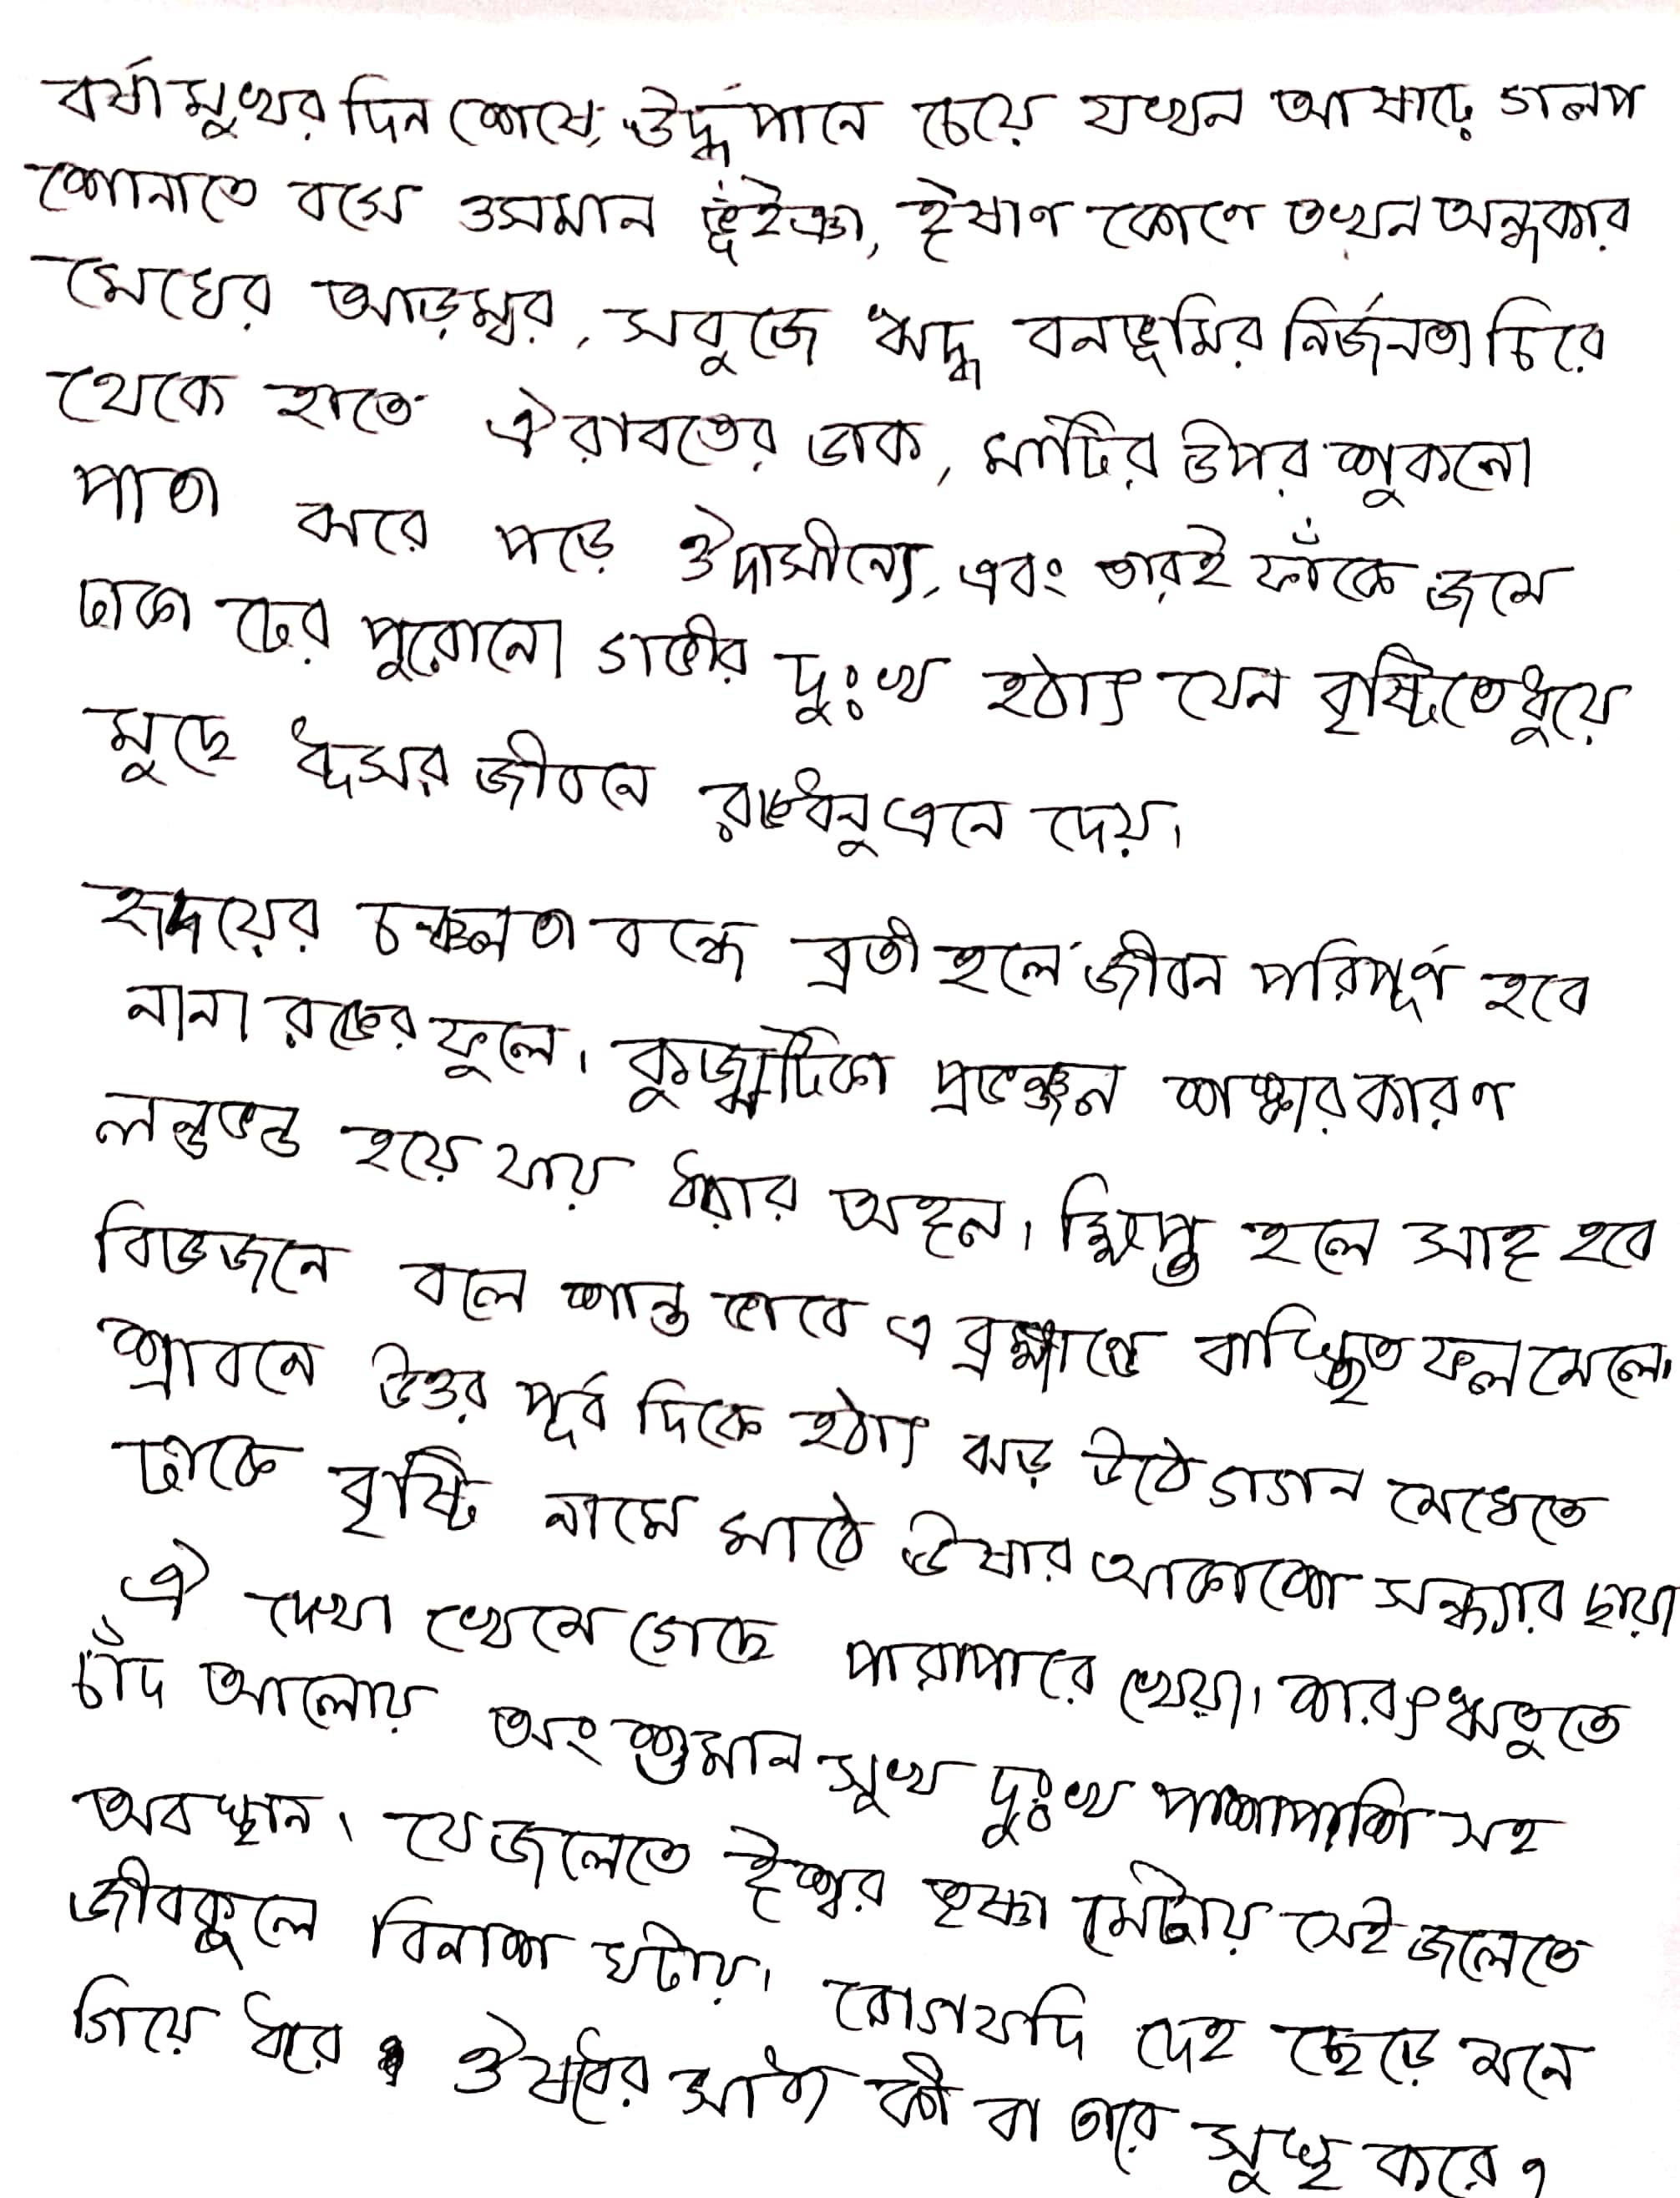 বর্ষামুখর দিন শেষে, ঊর্দ্ধপানে চেয়ে যখন আষাঢ়ে গল্প
শোনাতে বসে ওসমান ভূঁইঞা, ঈষাণ কোণে তখন অন্ধকার
মেঘের আড়ম্বর, সবুজে ঋদ্ধ বনভূমির নির্জনতা চিরে
থেকে হাতে ঐরাবতের ডাক, মাটির উপর শুকনো
পাতা ঝরে পড়ে ঔদাসীন্যে, এবং তারই ফাঁকে জমে
ঢাকা ঢের পুরোনো গভীর দুঃখ হঠাৎ যেন বৃষ্টিতে ধুয়ে
মুছে ধূসর জীবনে রঙধনু এনে দেয়।
হৃদয়ের চঞ্চলতা বন্ধে ব্রতী হলে জীবন পরিপূর্ণ হবে
নানা রঙের ফুলে। কুজ্ঝটিকা প্রভঞ্জন শঙ্কার কারণ
লন্ডভন্ড হয়ে যায় ধরার অঙ্গন। ক্ষিপ্ত হলে সাঙ্গ হবে
বিভজনে বলে শান্ত ভাবে এ ব্রহ্মাণ্ডে বাঞ্ছিত ফল মেলে।
শ্রাবনে উত্তর পূর্ব দিকে হঠাৎ ঝড় উঠে গগন মেঘেতে
ঢাকে বৃষ্টি নামে মাঠে ঊষার আকাশে সন্ধ্যার ছায়া
ঐ দেখা থেমে গেছে পারাপারে খেয়া। শরৎ ঋতুতে
চাঁদ আলোয় অংশুমান সুখ দুঃখ পাশাপাশি সহ
অবস্থান। যে জলেতে ঈশ্বর তৃষ্ণা মেটায় সেই জলেতে
জীবকুলে বিনাশ ঘটায়। রোগ যদি দেহ ছেড়ে মনে
গিয়ে ধরে ঔষধের সাধ্য কী বা তারে সুস্থ করে?